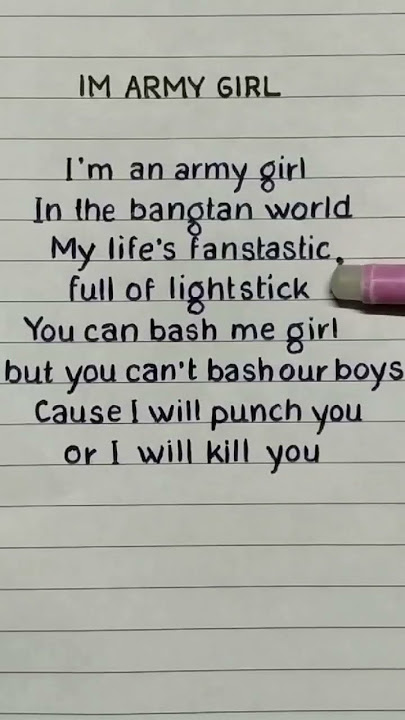 IM ARMY GIRL
I'm an army girl
In the bangtan world
My life's fanstastic.
full of lightstick
You can bash me girl
but you can't bash our boys
Cause I will punch you
or I will kill you